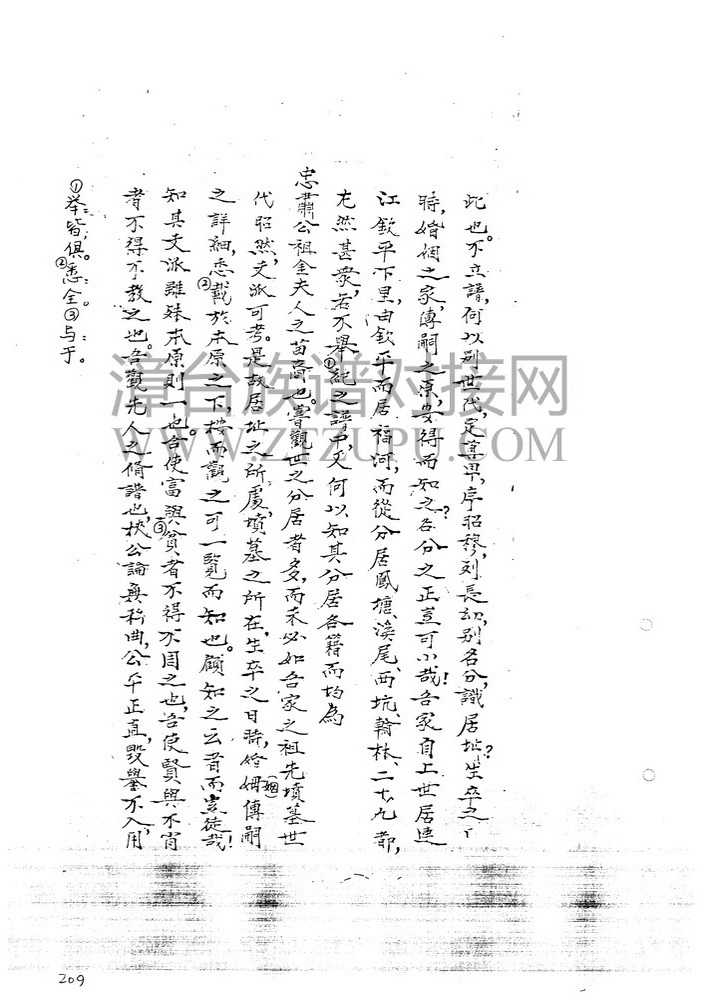 此也。不立譜,何以别世代,定尊卑,序昭穆,列長幼,别名分,識居址,生卒之
時,婚姻之家,傳嗣之宗,安得而知之?名分之正豈可小哉!吾家自上世居連
江欽平下里,由欽平而居福河,而從分居鳳塘、溪尾、西坑、翰林、二十九都,
尤然甚衆,若不舉①紀之譜中,又何以知其分居各籍而均為
忠肅公祖金夫人之苗裔也。嘗觀世之分居者多,而未必如吾家之祖先墳墓世
代昭然,支派可考。是故居址之所處,墳墓之所在,生卒之日時,婚姆(姻)傳嗣
之詳細,悉②載於本原之下,按而觀之可一覽而知也。顧知之云者而豈徒哉!
知其支派雖殊本原則一也。合使富與③貧者不得不目之也,吾使賢與不肖
者不得不教之也。吾觀先人之脩譜也,秉公論無私曲,公平正直,毀譽不入,用
①举:皆,俱。②悉:全。③与:于。
漳台族谱对接网
WWW.ZTZUPU.COM
209